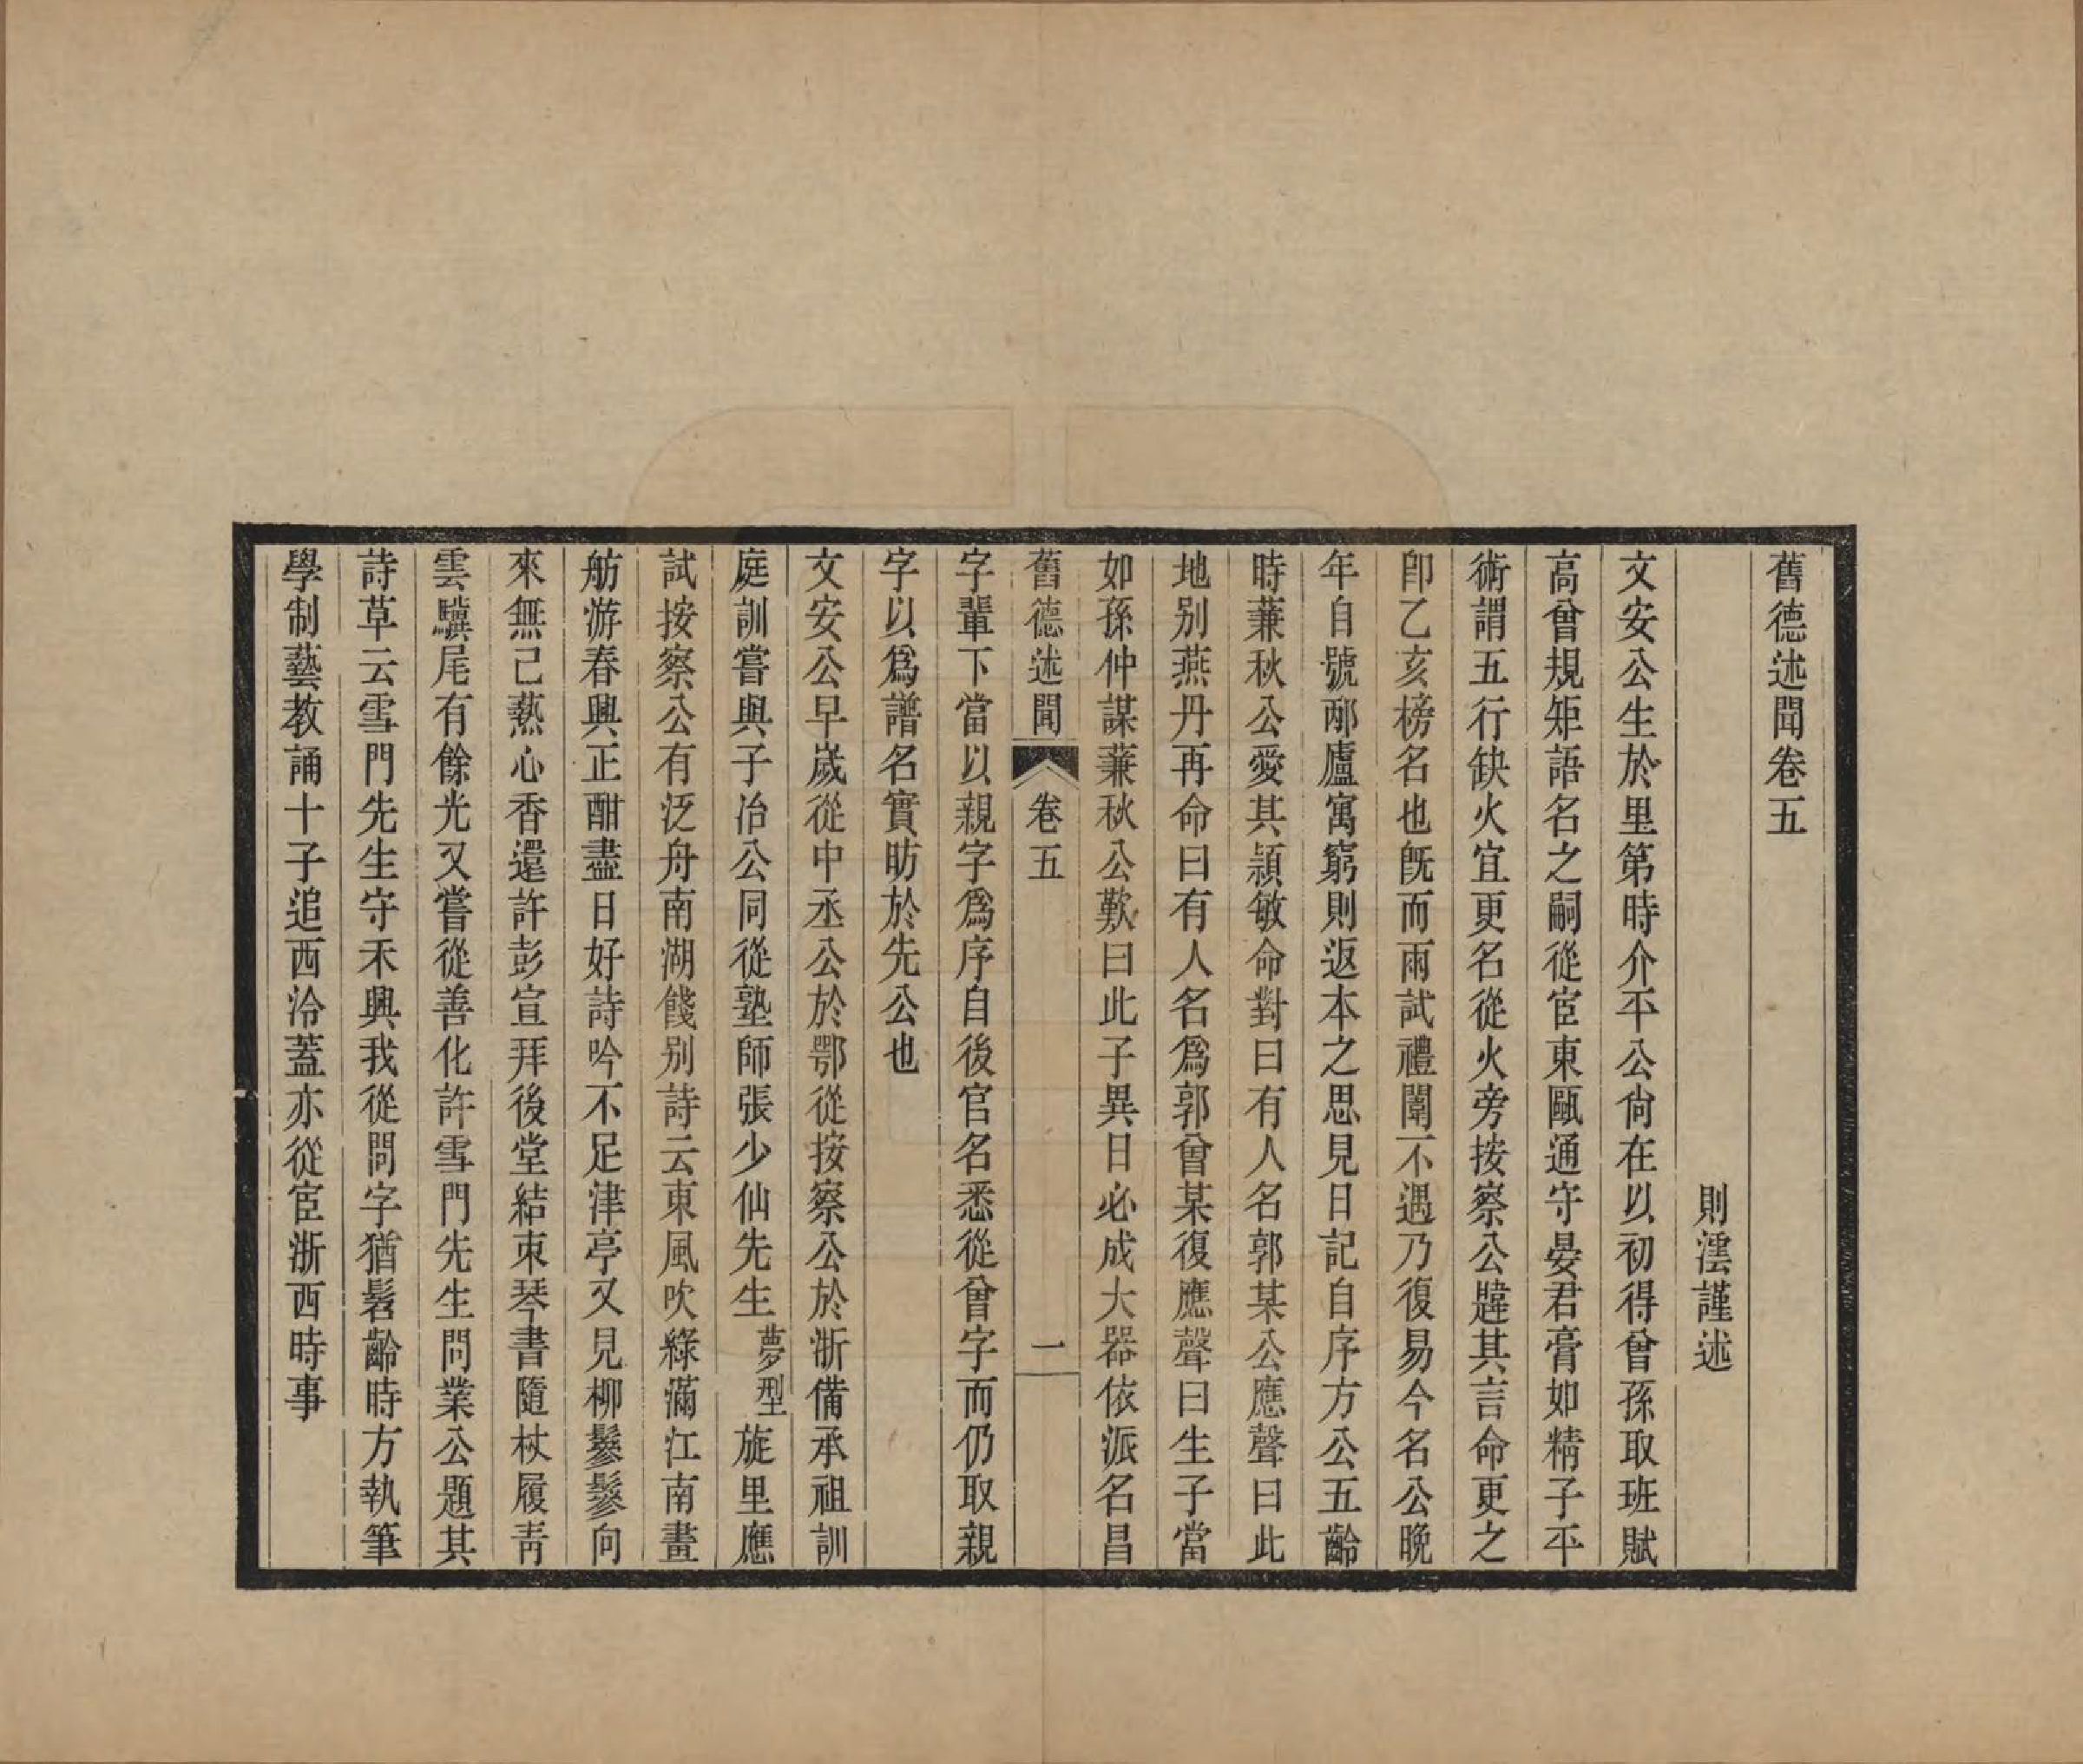 舊德述聞卷五
則澐謹述
文安公生於里第時介平公尙在以初得曾孫取班賦
高曾規矩語名之嗣從宦東甌通守晏君膏如精子平
術謂五行缺火宜更名從火旁按察公韙其言命更之
卽乙亥榜名也旣而兩試禮闈不遇乃復易今名公晩
年自號邴廬寓窮則返本之思見日記自序方公五齡
時蒹秋公愛其穎敏命對曰有人名郭某公應聲曰此
地别燕丹再命曰有人名爲郭曾某復應聲曰生子當
如孫仲謀蒹秋公歎曰此子異日必成大器依派名昌
舊德述聞
卷五
一
字輩下當以親字爲序自後官名悉從曾字而仍取親
字以爲譜名實昉於先公也
文安公早歲從中丞公於鄂從按察公於浙備承祖訓
庭訓嘗與子冶公同從塾師張少仙先生夢型旋里應
試按察公有泛舟南湖餞别詩云東風吹綠滿江南畫
舫游春興正酣盡日好詩吟不足津亭又見柳鬖鬖向
來無己爇心香還許彭宣拜後堂結束琴書隨杖履靑
雲驥尾有餘光又嘗從善化許雪門先生問業公題其
詩草云雪門先生守禾興我從問字猶髫齡時方執筆
學制藝教誦十子追西泠蓋亦從宦浙西時事